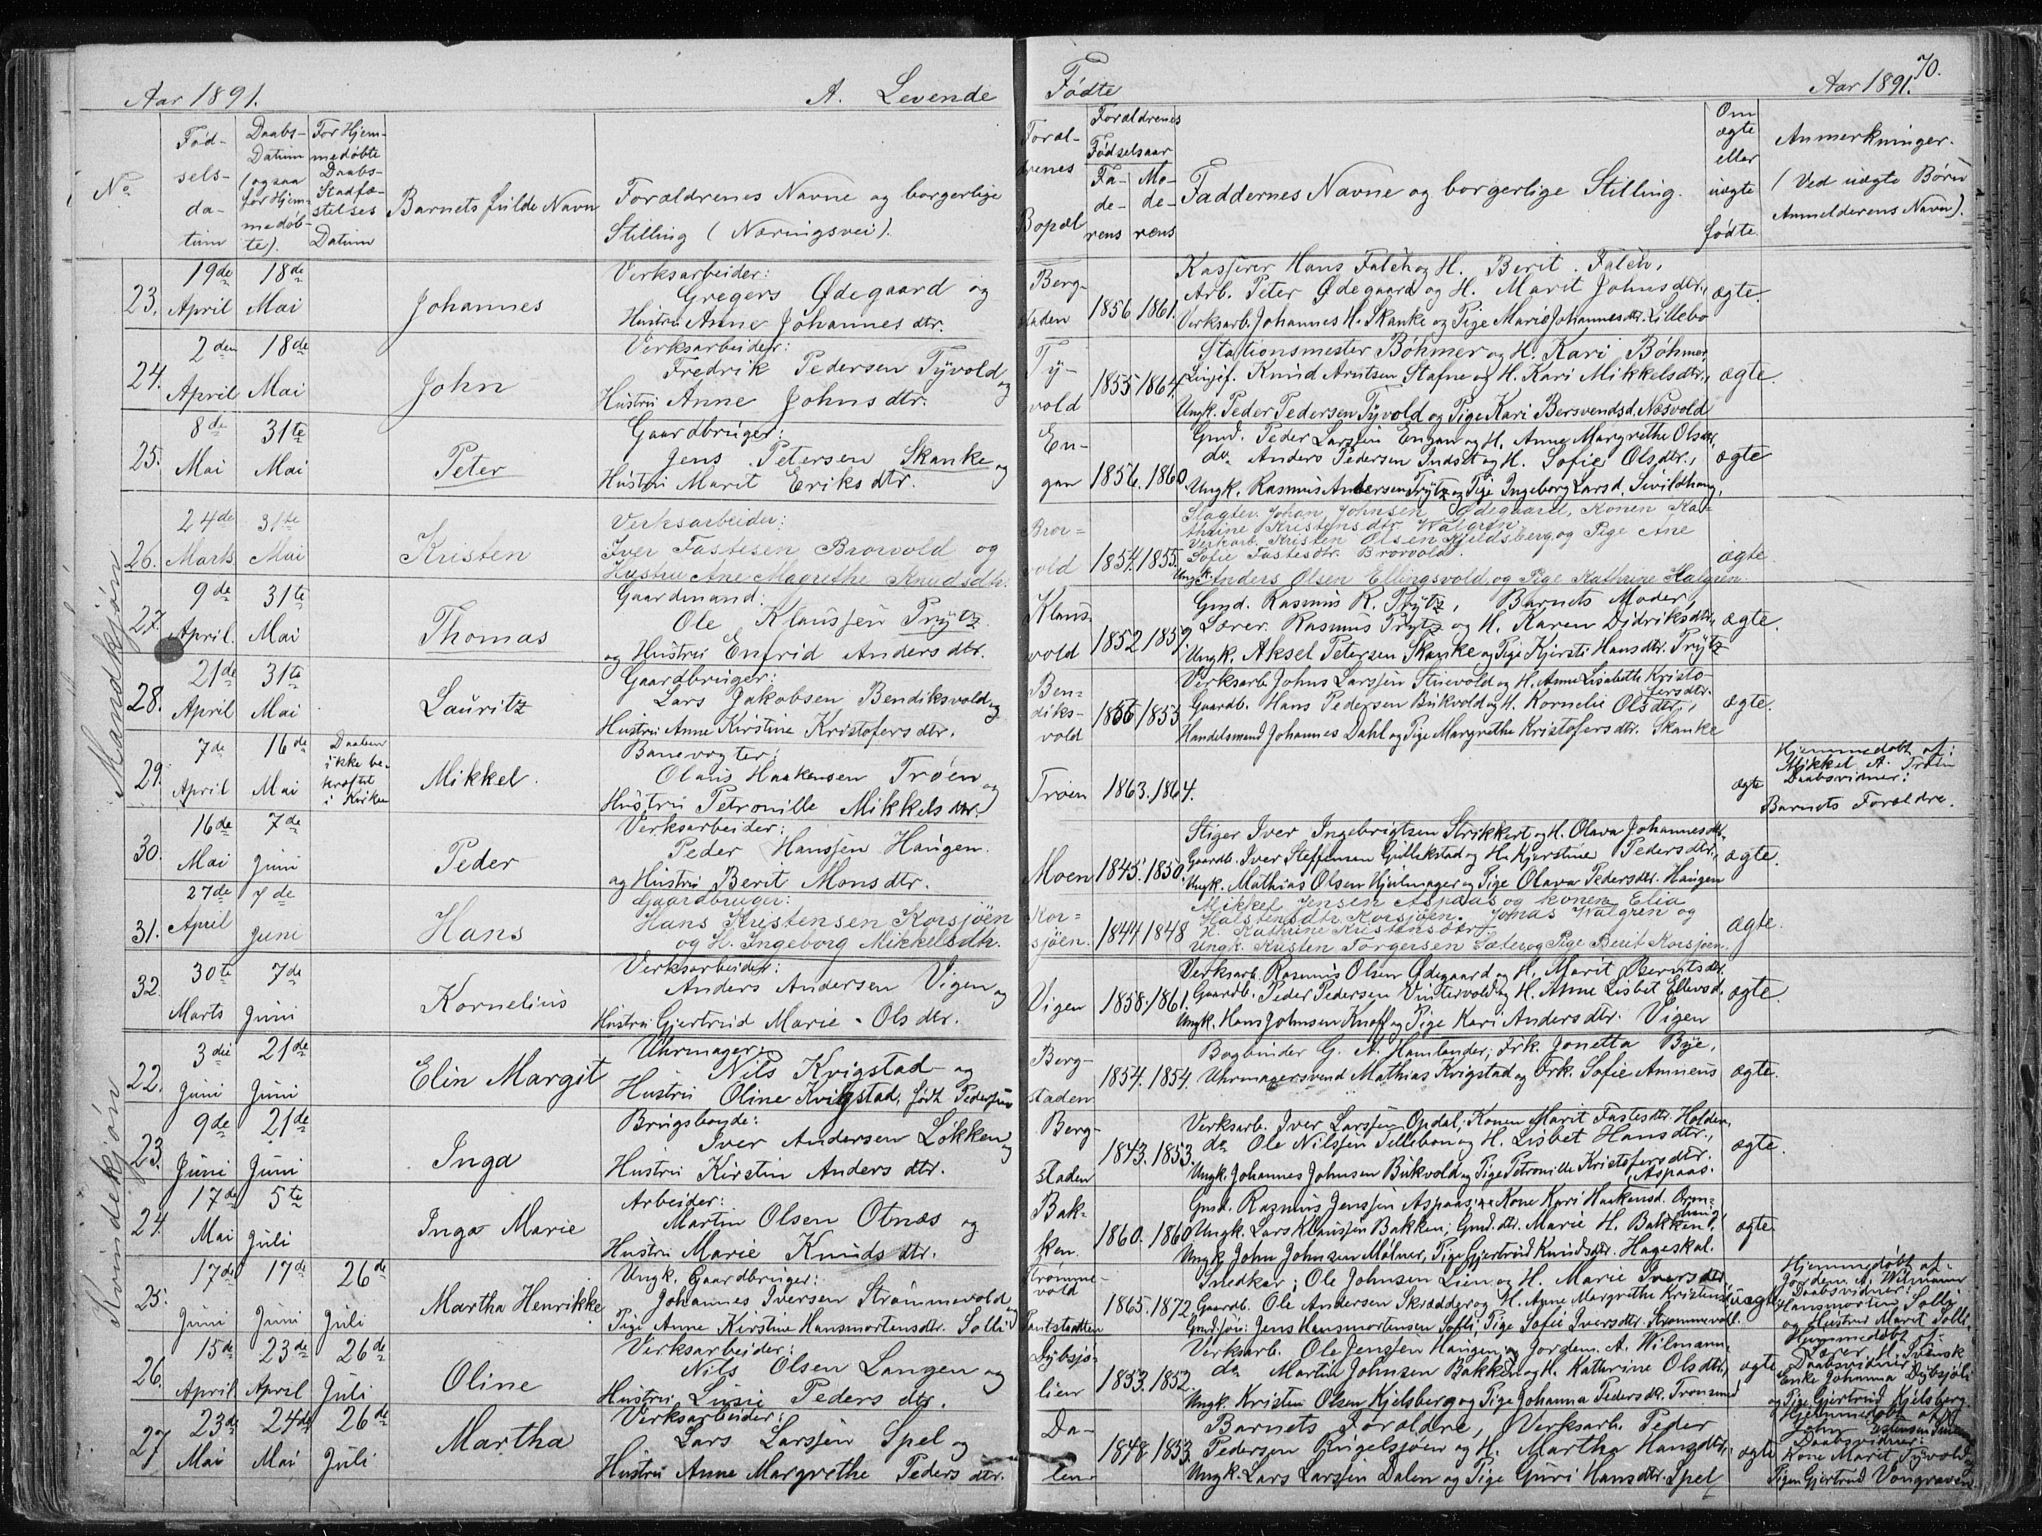 Aar 1891.
A. Levende
Fødte
Aar 1891.
70.
No
Fød-
sels-
da-
tum
Daabs-
Datum
(ogsaa
for Hjem-
medøb-
te).
For Hjem-
medøbte
Daabs-
Stadfæ-
stelses
Datum
Barnets fulde Navn
Forældrenes Navne og borgerlige
Stilling (Næringsvei).
Foræl-
drenes
Bopæl
Forældrenes
Fødselsaar
Fa-
de-
rens
Mo-
de-
rens
Faddernes Navne og borgerlige Stilling.
Om
ægte
eller
uægte
fødte.
Anmerkninger.
(Ved uægte Børn
Anmelderens Navn).
Mandkjøn
23.
19de
April
18de
Mai
Johannes
Verksarbeider:
Gregers Ødegaard og
Hustru Anne Johannesdtr.
Berg-
staden
1856
1861.
Kasserer Hans Falch og H. Berit Falch,
Arb. Peter Ødegaard og H. Marit Johnsdtr.,
Verksarb. Johannes H. Skanke og Pige Marie Johannesdtr. Lillebo
ægte.
24.
2den
April
18de
Mai
John
Verksarbeider:
Fredrik Pedersen Tyvold og
Hustru Anne Johnsdtr.
Ty-
vold
1855
1864.
Stationsmester Bøhmer og H. Kari Bøhmer,
Linjef. Knud Arntsen Stafne og H. Kari Mikkelsdtr.,
Ungk. Peder Pedersen Tyvold og Pige Kari Bersvendsd. Næsvold
ægte.
25.
8de
Mai
31te
Mai
Peter
Gaardbruger:
Jens Petersen Skanke og
Hustru Marit Eriksdtr.
En-
gan
1856.
1860
Gmd. Peder Larsen Engan og H. Anne Margrethe Olsdtr,
do. Anders Pedersen Indset og H. Sofie Olsdtr.,
Ungk. Rasmus Andersen Prytz og Pige Ingeborg Larsd.
ægte
26.
24de
Marts
31te
Mai
Kristen
Verksarbeider:
Iver Fastesen Brovold og
Hustru Ane Magrethe Knudsdtr.
Bror-
vold
1854.
1855.
Slagter Johan Johnsen Ødegaard, Konen Ka-
thrine Kristensdtr Walgren
Verkarb. Kristen Olsen Kjeldsberg og Pige Ane
Sofie Fastesdtr. Brorvold.
Ungk. Anders Olsen Ellingsvold og Pige Kathrine Halgren.
ægte
27.
9de
April.
31te
Mai
Thomas
Gaardmand:
Ole Klausen Prytz.
og Hustru Enfrid Andersdtr.
Klaus-
vold
1852
1852.
Gmd. Rasmus R. Prytz, Barnets Moder,
Lærer Rasmus Prytz og H. Karen Didriksdtr.,
Ungk. Aksel Petersen Skanke og Pige Kjersti Hansdtr. Prytz
ægte.
28.
21de
April
31te
Mai
Lauritz
Gaardbruger:
Lars Jakobsen Bendiksvold og
Hustru Anne Kirstine Kristofersdtr.
Ben-
diks-
vold
1856
1853
Verksarb. Johns Larsen Stuevold og H. Anne Lisabeth Kristo-
fersdtr.
Gaardb. Hans Pedersen Bukvold og H. Kornelie Olsdtr.,
Handelsmand Johannes Dahl og Pige Margrethe Kristofersdtr. Skanke
ægte.
29.
7de
April
16de
Mai
Daaben
ikke be-
kræftet
i Kirken
Mikkel.
Banevogter:
Olaus Haakensen Trøen og
Hustru Petronille Mikkelsdtr.
Trøen
1863.
1864.
ægte
Hjemmedøbt af:
Mikkel A. Trøen
Daabsvidner:
Barnets Forældre.
30.
16de
Mai
7de
Juni
Peder
Verksarbeider:
Peder Hansen Haugen.
og Hustru Berit Monsdtr.
Moen
1845.
1850.
Stiger Iver Ingebrigtsen Strikkert og H. Olava Johannesdtr
Gaardb. Iver Steffensen Gullikstad og H. Kjerstine Pedersdtr.,
Ungk. Mathias Olsen Hjulmager og Pige Olava Pedersdtr. Haugen
ægte.
31.
27de
April
7de
Juni
Hans
Gaardbruger:
Hans Kristensen Korsjöen
og H. Ingeborg Mikkelsdtr.
Kor-
sjöen.
1844
1848
Mikkel Jensen Aspaas og konen Elia
Halstensdtr Korsjöen. Jonas Walgren og
H. Kathrine Kristensdtr.
Ungk. Kristen Torgersen Sæter og Pige Berit Korsjoen.
ægte.
32.
30te
Marts
7de
Juni
Kornelius
Verksarbeider:
Anders Andersen Vigen og
Hustru Gjertrud Marie Olsdtr.
Vigen
1858.
1861.
Verksarb. Rasmus Olsen Ødegaard og H. Marit Berntsdtr
Gaardb. Peder Pedersen Vintervold og H. Anne Lisbet Ellevsd.
Ungk. Hans Johnsen Knoff og Pige Kari Andersdtr. Vigen
ægte.
Kvindekjøn
22.
3die
Juni
21de
Juni
Elin Margit
Uhrmager:
Nils Kvigstad og
Hustru Oline Kvigstad, født Pedersen
Berg-
staden
1854.
1854.
Bogbinder G. A. Hamlander, Frk. Jonetta Bye,
Uhrmagersvend Mathias Kvigstad og Frk. Sofie Amneus
ægte.
23.
9de
Juni
21de
Juni
Inga
Brugsbonde:
Iver Andersen Løkken og
Hustru Kirstin Andersdtr.
Berg-
staden
1843.
1853.
Verksarb. Iver Larsen Opdal, Konen Marit Fastesdtr. Holden,
do Ole Nilsen Tellebon og H. Lisbet Hansdtr.,
Ungk. Johannes Johnsen Bukvold og Pige Petronille Kristofersdtr.
Aspaas.
ægte.
24.
17de
Mai
5te
Juli
Inga Marie
Arbeider:
Martin Olsen Otnæs og
Hustru Marie Knudsdtr.
Bak-
ken.
1860.
1860
Gmd. Rasmus Jensen Aspaas, Kone Kari Haakensd. Orm-
haug,
Ungk. Lars Klausen Bakken, Gmd.dtr. Marie H. Bakken,
Ungk. John Johnsen Mølner, Pige Gjertrud Knudsdtr. Hageskal.
ægte.
25.
17de
Juni
17de
Juni
26de
Juli
Martha Henrikke
Ungk. Gaardbruger:
Johannes Iversen Strømmevold og
Pige Anne Kirstine Hansmortensdtr. Solli
Strømme-
vold
1865.
1872.
Snedker Ole Johnsen Lien og H. Marie Iversdtr.
Gaardb. Ole Andersen Skrædder og H. Anne Margrethe Kristensd.
Gmdsøn: Jens Hansmortensen Solli, Pige Sofie Iversdtr. Strømmevold.
uægte
Hjemmedøbt af:
Jordem. A. Wilmann
Daabsvidner:
Hansmortens Solli
og Hustru Marit Solli.
26.
15de
April
23de
April
26de
Juli
Oline
Verksarbeider:
Nils Olsen Langen og
Hustru Lusie Pedersdtr.
Dybsjø-
lien
1853.
1852.
Verksarb. Ole Jensen Haugen, Jordem. A. Wilmann
do Martin Johnsen Bakken og H. Kathrine Olsdtr.,
Ungk. Kristen Olsen Kjelsberg og Pige Johanna Pedersdtr. Tronsmed
ægte
Hjemmedøbt af:
Lærer H. Svensk
Daabsvidner
Enke Johanna Dybsjøli
og Pige Gjertrud Kjelsberg.
27
23de
Mai
24de
Mai
26de
Juli
Martha
Verksarbeider:
Lars Larsen Spel og
Hustru Anne Margrethe Pedersdtr.
Da-
len
1848.
1853
Barnets Forældre, Verksarb. Peder
Pedersen Rugelsjøen og H. Martha Hansdtr.,
Ungk. Lars Larsen Dalen og Pige Guri Hansdtr. Spel
ægte
Hjemmedøbt af:
John
Daabsvidner:
Kone Marit Tyvold og
Pigen Gjertrud Vongraven